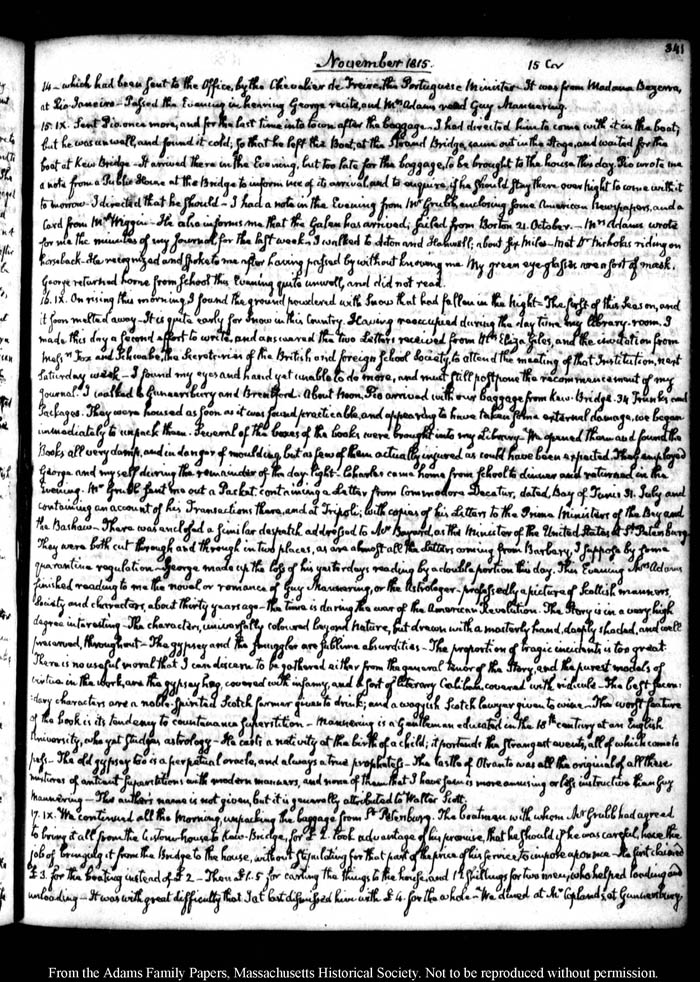 341
November 1815.
15 Cor
14 - which had been sent to the Office, by the Chevalier de Freire, the Portuguese Minister - It was from Madama Bezerra,
at Rio Janeiro - Passed the Evening in hearing George recite, and Mrs Adams read Guy Mannering.
15. IX. Sent Pio once more, and for the last time into town after the baggage - I had directed him to come with it in the boat;
but he was unwell, and found it cold; so that he left the Boat, at the Strand Bridge, came out in the Stage, and waited for the
boat at Kew Bridge - It arrived there in the Evening, but too late for the baggage, to be brought to the house this day. Pio wrote me
a note from a Public House at the Bridge to inform me of its arrival, and to enquire, if he should stay there over night to come with it
to morrow. I directed that he should - I had a note in the Evening from Mr Grubb, enclosing some American Newspapers, and a
Card from Mr Wiggin - He also informs me that the Galen has arrived; sailed from Boston 21. October. - Mrs Adams wrote
for me the minutes of my Journal for the last week - I walked to Acton and Hanwell; about six Miles - Met Dr Nicholas riding on
horseback - He recognized and spoke to me after having passed by without knowing me. My green eye-glasses are a sort of mask.
George returned home from School this Evening quite unwell, and did not read.
16. IX. On rising this morning, I found the ground powdered with Snow that had fallen in the Night - The first of this Season, and
it soon melted away - It is quite early for Snow in this Country. Having reoccupied during the day time my library-room, I
made this day a second effort to write, and answered the two Letters received from Mrs Eliza Giles, and the invitation from
Messrs Fox and Schwabe, the Secretaries of the British and foreign School Society, to attend the meeting of that Institution, next
Saturday week - I found my eyes and hand yet unable to do more, and must still postpone the recommencement of my
Journal. I walked to Gunnersbury and Brentford. About Noon, Pio arrived with our baggage from Kew-Bridge. 34 Trunks and
Packages. They were housed as soon as it was found practicable, and appearing to have taken some external damage, we began
immediately to unpack them. Several of the boxes of the books were brought into my Library. We opened them and found the
Books all very damp, and in danger of moulding, but as few of them actually injured as could have been expected. They employed
George and myself during the remainder of the day light. Charles came home from School to dinner and returned in the
Evening. Mr Grubb sent me out a Packet, containing a Letter from Commodore Decatur, dated, Bay of Tunis 31. July and
containing an account of his Transactions there, and at Tripoli; with copies of his Letters to the Prime Ministers of the Bey and
the Bashaw - There was enclosed a similar despatch addressed to Mr Bayard, as the Minister of the United States at St Petersburg
They were both cut through and through in two places, as are almost all the Letters coming from Barbary, I suppose by some
quarantine regulation - George made up the loss of his yesterdays reading by a double portion this day. This Evening Mrs Adams
finished reading to me the novel or romance of Guy Mannering, or the Astrologer - professedly a picture of Scottish manners,
Society and characters, about thirty years ago - the time is during the war of the American Revolution. The Story is in a very high
degree interesting - The characters, universally coloured beyond Nature, but drawn with a masterly hand, deeply shaded, and well
preserved, throughout - The gypsey and the smuggler are sublime absurdities - The proportion of tragic incidents is too great
There is no useful moral that I can discern to be gathered either from the general tenor of the Story, and the purest models of
virtue in the work, are the gypsey hag, covered with infamy, and a sort of literary Caliban, covered with ridicule - The best secon-
dary characters are a noble-spirited Scotch farmer given to drink; and a waggish Scotch lawyer given to wine - The worst feature
of the book is its tendency to countenance superstition - Mannering is a Gentleman educated in the 18th century at an English
University, who yet studies astrology - He casts a nativity at the birth of a child; it portends the strangest events, all of which come to
pass - The old gypsey too is a perpetual oracle, and always a true prophetess - The Castle of Otranto was all the original of all these
mixtures of antient superstitions with modern manners, and none of them that I have seen is more amusing or less instructive than Guy
Mannering - The authors name is not given, but it is generally attributed to Walter Scott.
17. IX. We continued all the Morning, unpacking the baggage from St Petersburg. The boatmen with whom Mr Grubb had agreed
to bring it all from the Custom-house to Kew-Bridge, for £ 2. took advantage of his promise, that he should, if he was careful, have the
job of bringing it from the Bridge to the house, without stipulating for that part of the price of his service, to impose upon me - He first claimed
£ 3. for the boating instead of £ 2 - Then £ 1. 5 for carting the things to the house, and 12 shillings for two men, who helped loading and
unloading - It was with great difficulty that I at last dismissed him with £ 4. for the whole - We dined at Mr Coplands, at Gunnersbury
From the Adams Family Papers, Massachusetts Historical Society. Not to be reproduced without permission.